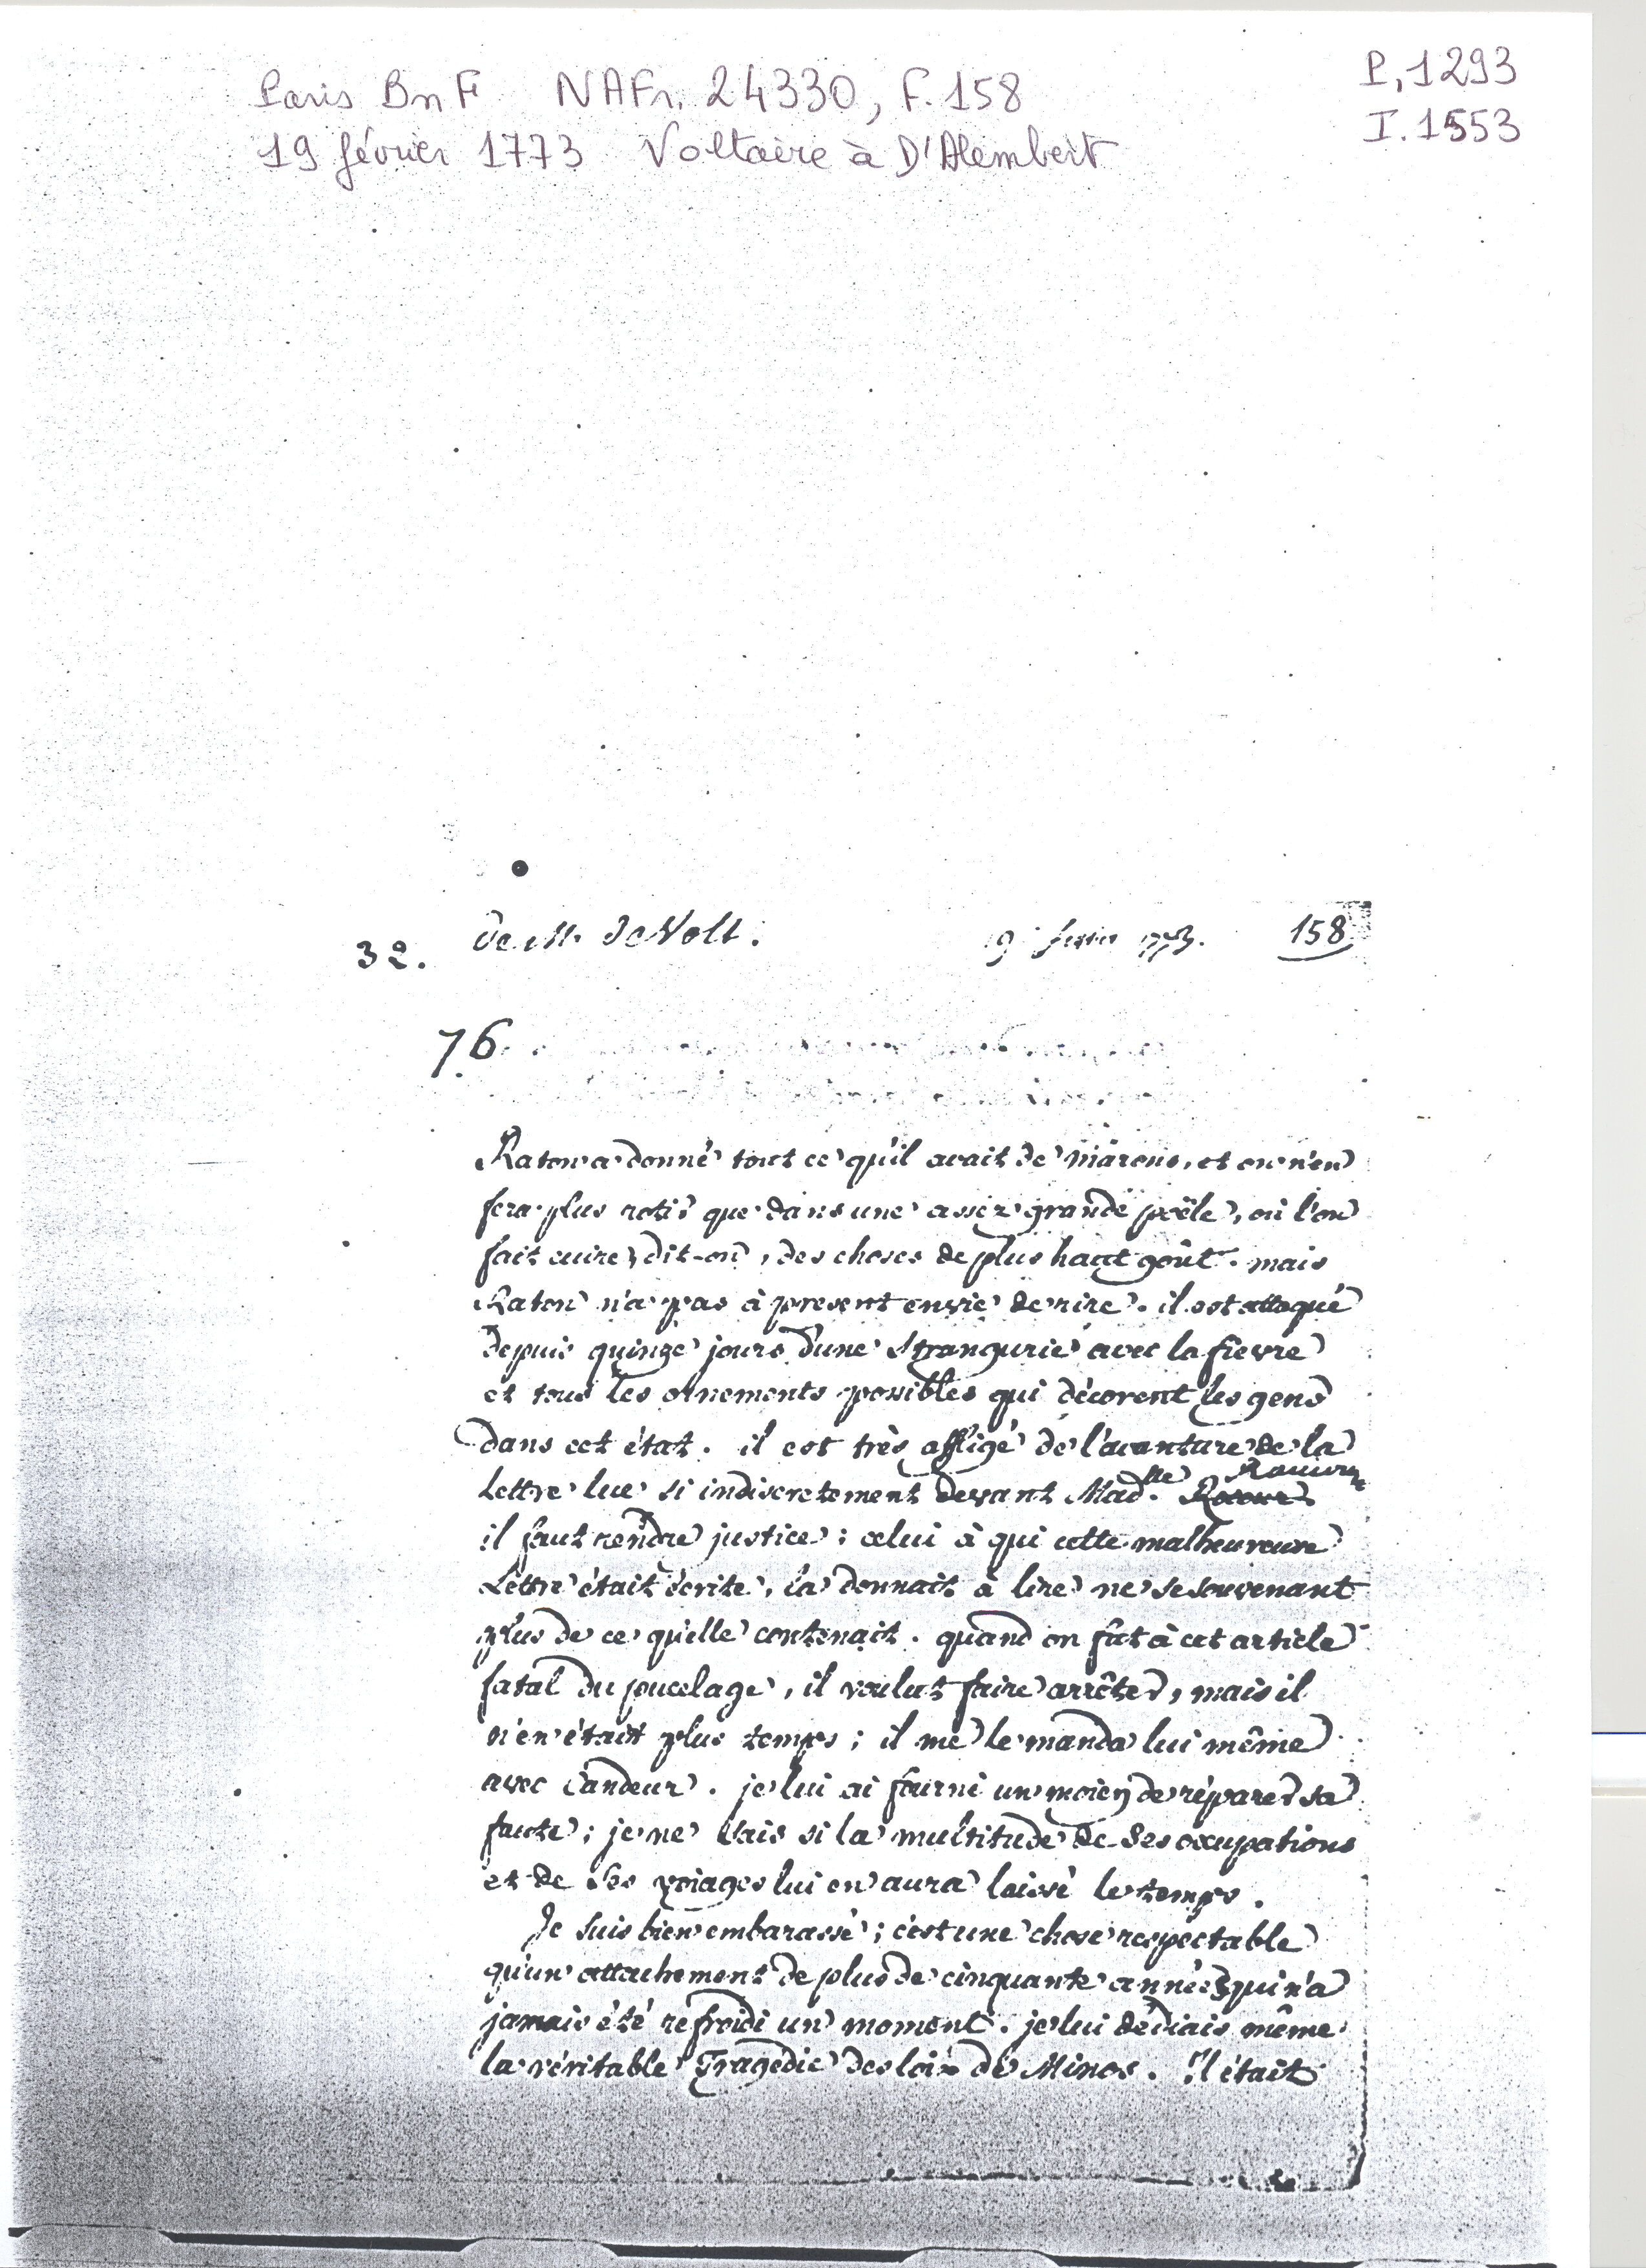 Paris BnF NAFr. 24330, F. 158
P. 1293
19 février 1773 Voltaire à D'Alembert
I. 1553
32. de M. de Volt. 19 fevrier 1773. 158
76.
Raton a donné tout ce qu'il avait de marons, et on n'en
fera plus rotir que dans une assez grande poële, où l'on
fait cuire, dit-on, des choses de plus haut goût. mais
Raton n'a pas à present envie de rire. il est attaqué
depuis quinze jours d'une strangurie avec la fievre
et tous les ornements possibles qui décorent les gens
dans cet état. il est très affligé de l'avanture de la
Lettre lue si indiscretement devant Madlle. Raucour
il faut rendre justice; celui à qui cette malheureuse
Lettre était écrite, la donnait à lire ne se souvenant
plus de ce qu'elle contenait. quand on fut à cet article
fatal du pucelage, il voulut faire arrêter, mais il
n'en était plus temps; il me le manda lui même
avec candeur. je lui ai fourni un moien de réparer sa
faute; je ne sais si la multitude de ses occupations
et de ses voiages lui en aura laissé le temps.
Je suis bien embarassé; c'est une chose respectable
qu'un attachement de plus de cinquante années qui n'a
jamais été refroidi un moment. je lui dédiais même
la véritable Tragédie des loix de Minos. Il était